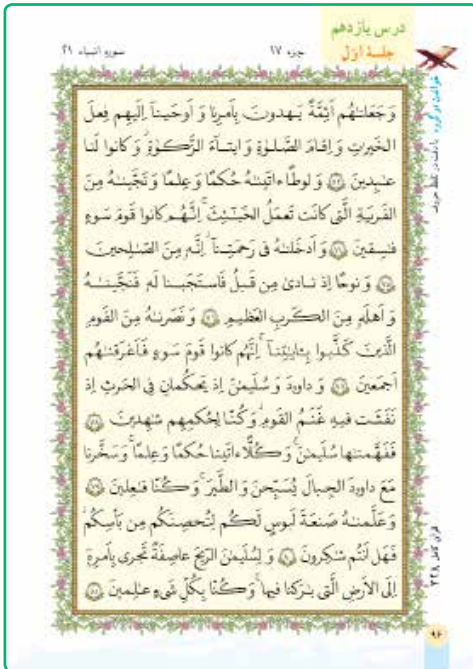 درس یازدهم
جلسهٔ اوّل
جزء ۱۷
سوره انبیاء ۲۱
خواندن در گروه با دقت در تلفظ حروف
وَ جَعَلناهُم اَئِمَّةً یَهدونَ بِاَمرِنا وَ اَوحَینا اِلَیهِم فِعلَ
الخَیراتِ وَ اِقامَ الصَّلوٰةِ وَ ایتاءَ الزَّکوٰةِ وَ کانوا لَنا
عٰبِدینَ ۷۳ وَ لوطًا ءاتَینٰهُ حُکمًا وَ عِلمًا وَ نَجَّینٰهُ مِنَ
القَریَةِ الَّتی کانَت تَعمَلُ الخَبٰئِثَ اِنَّهُم کانوا قَومَ سَوءٍ
فٰسِقینَ ۷۴ وَ اَدخَلنٰهُ فی رَحمَتِنا اِنَّهو مِنَ الصّٰلِحینَ
۷۵ وَ نوحًا اِذ نادیٰ مِن قَبلُ فَاستَجَبنا لَهو فَنَجَّینٰهُ
وَ اَهلَهو مِنَ الکَربِ العَظیمِ ۷۶ وَ نَصَرنٰهُ مِنَ القَومِ
الَّذینَ کَذَّبوا بِئایٰتِنا اِنَّهُم کانوا قَومَ سَوءٍ فَاَغرَقنٰهُم
اَجمَعینَ ۷۷ وَ داوودَ وَ سُلَیمٰنَ اِذ یَحکُمانِ فِی الحَرثِ اِذ
نَفَشَت فیهِ غَنَمُ القَومِ وَ کُنّا لِحُکمِهِم شٰهِدینَ ۷۸
فَفَهَّمنٰها سُلَیمٰنَ وَ کُلًّا ءاتَینا حُکمًا وَ عِلمًا وَ سَخَّرنا
مَعَ داوودَ الجِبالَ یُسَبِّحنَ وَ الطَّیرَ وَ کُنّا فٰعِلینَ ۷۹
وَ عَلَّمنٰهُ صَنعَةَ لَبوسٍ لَکُم لِتُحصِنَکُم مِن بَأسِکُم
فَهَل اَنتُم شٰکِرونَ ۸۰ وَ لِسُلَیمٰنَ الرّیحَ عاصِفَةً تَجری بِاَمرِهی
اِلَی الاَرضِ الَّتی بٰرَکنا فیها وَ کُنّا بِکُلِّ شَیءٍ عٰلِمینَ ۸۱
قرآن کامل ۳۲۸
۹۶